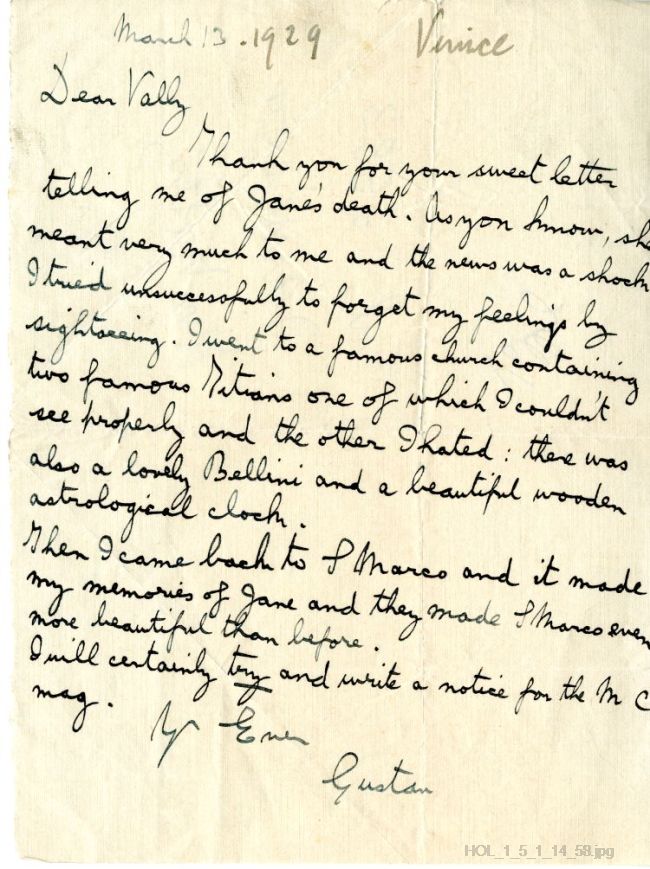 March 13. 1929 Venice
Dear Vally
Thank you for your sweet letter
telling me of Jane's death. As you know, she
meant very much to me and the news was a shock
I tried unsuccessfully to forget my feelings by
sightseeing. I went to a famous church containing
two famous Titians one of which I couldn't
see properly and the other I hated: there was
also a lovely Bellini and a beautiful wooden
astrological clock.
Then I came back to S Marco and it made
my memories of Jane and they made S Marco even
more beautiful than before.
I will certainly try and write a notice for the M C
mag.
Yr Ever
Gustav
HOL_1_5_1_14_58.jpg